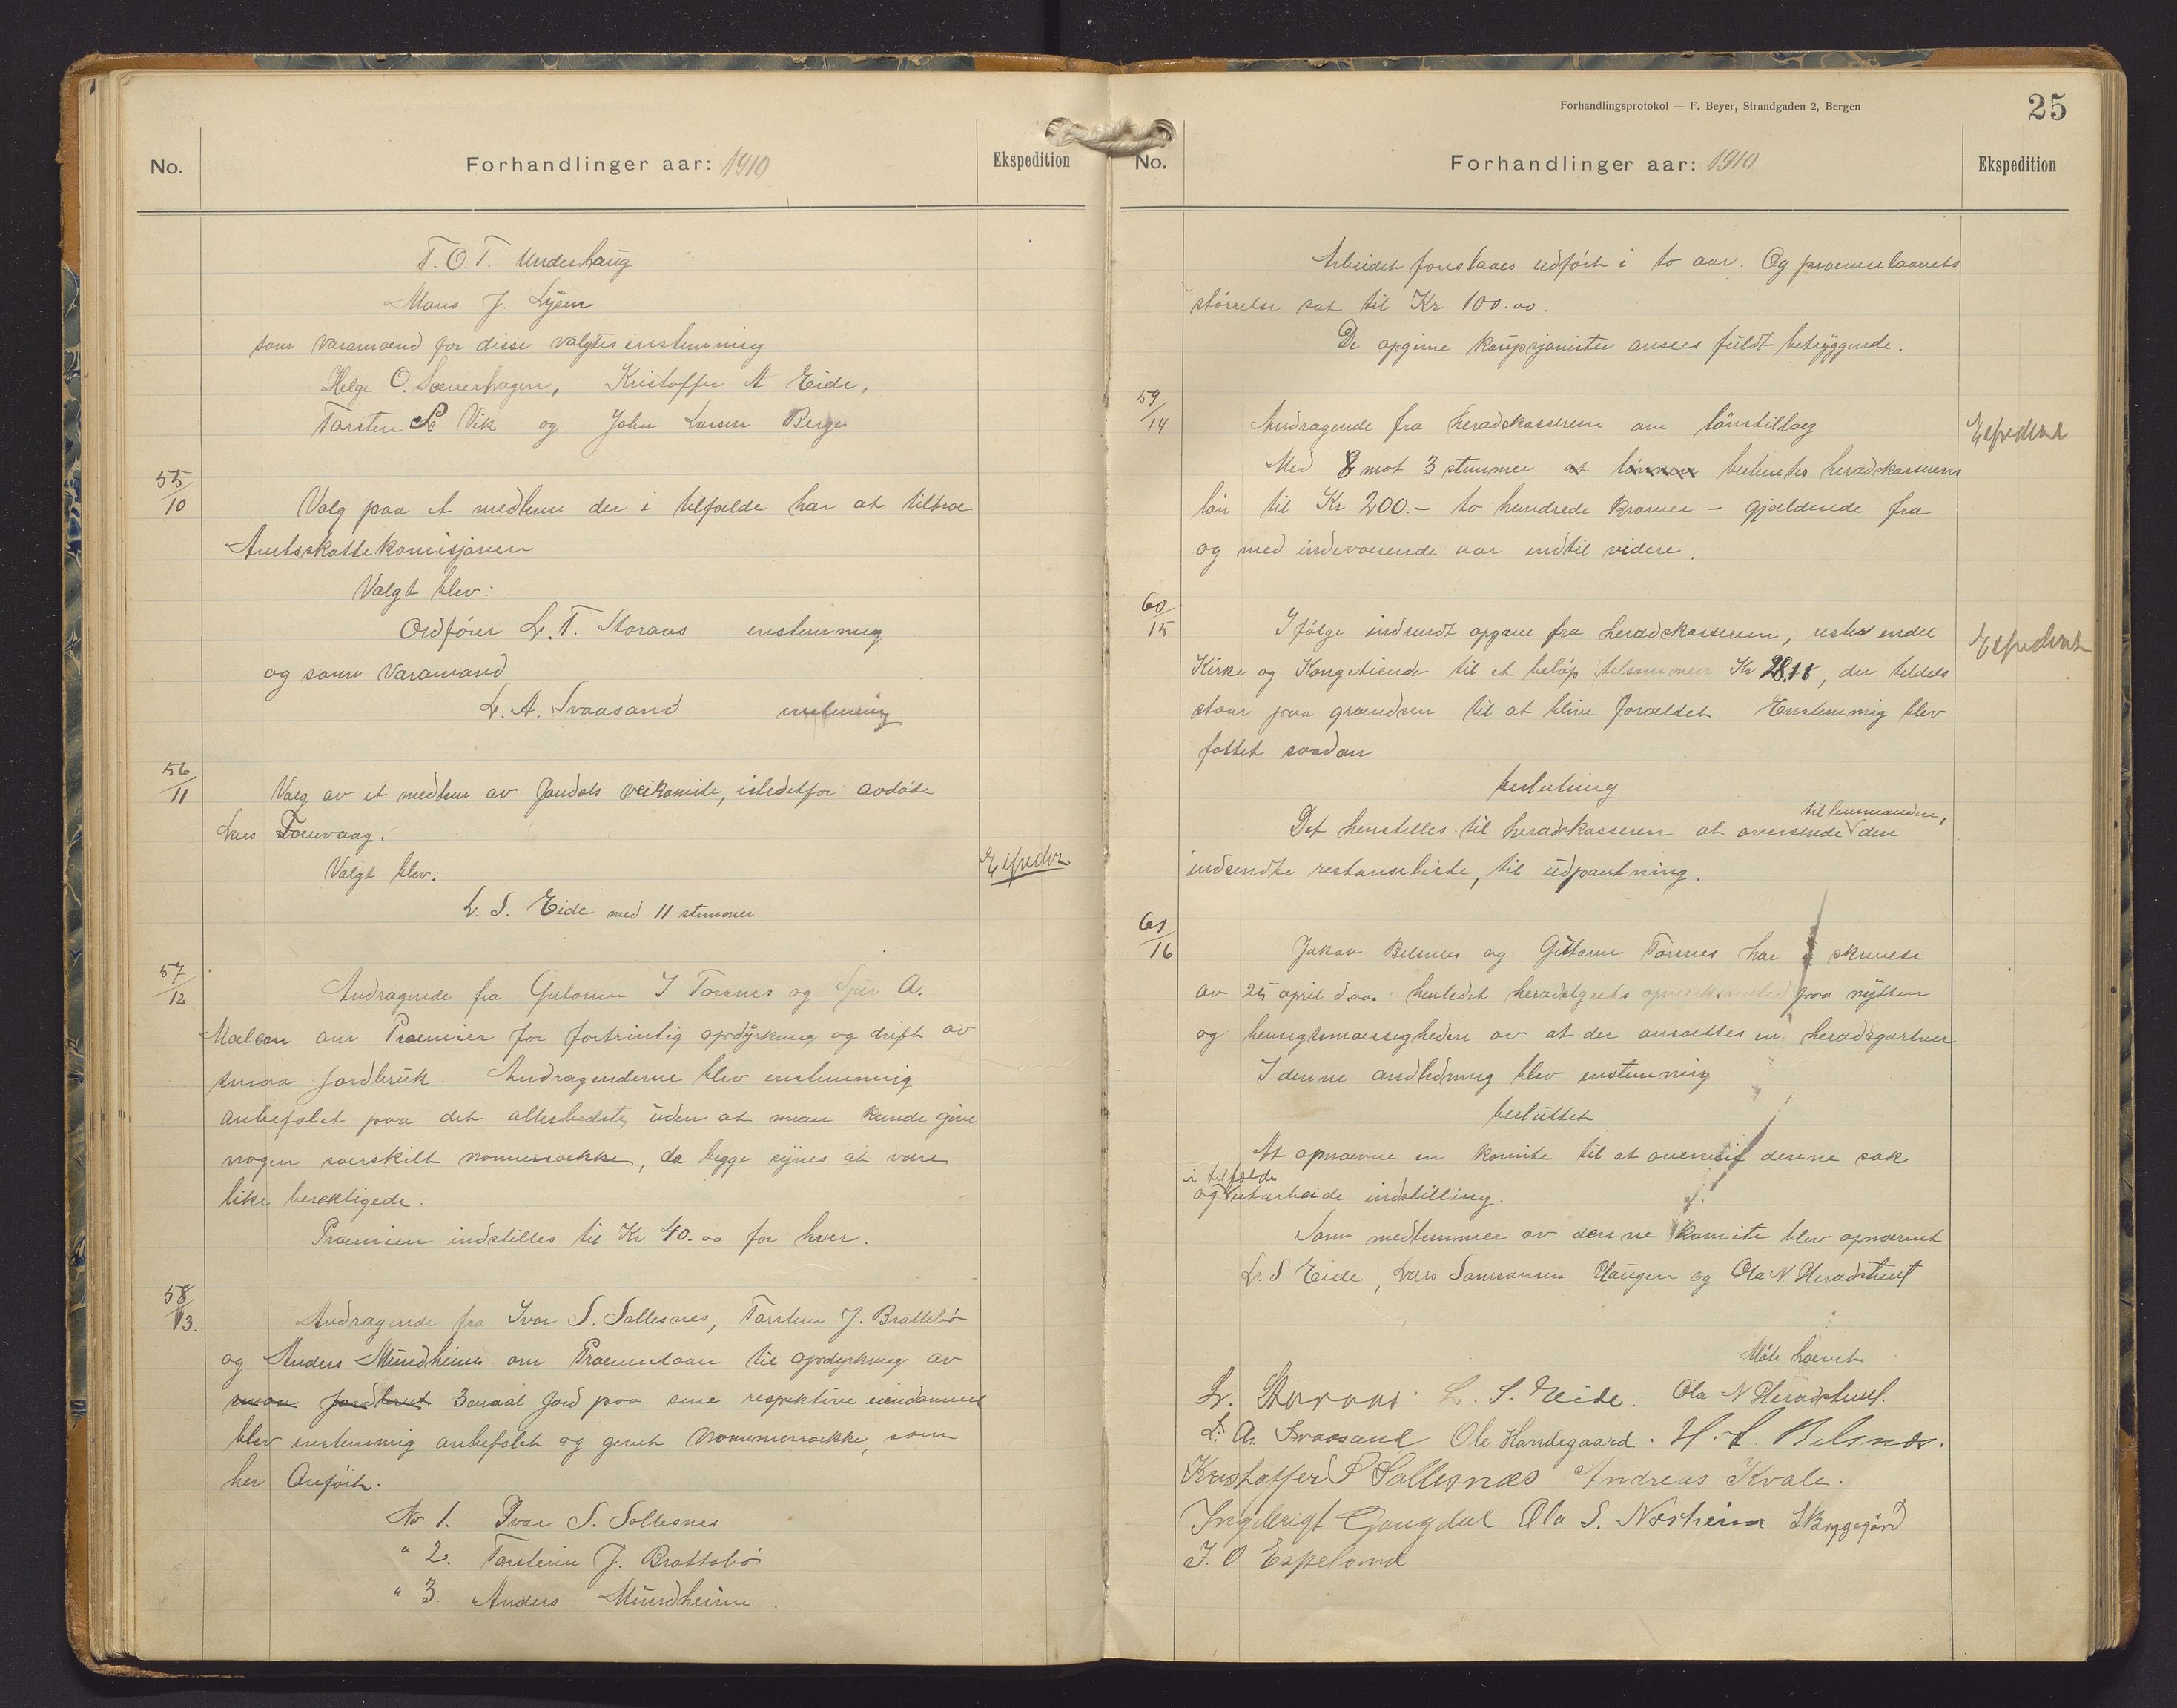 No.
Forhandlinger aar: 1910
Ekspedition
T. O. T. Underhaug
Mans J. Lysen
som varamænd for disse valgtes enstemmig
Helge O. Sæverhagen, Kristoffer A Eide,
Torsten S Vik og John Larsen Berge
55/10
Valg paa et medlem der i tilfælde har at tiltræ
Amtsskattekomisjonen
Valgt blev:
Ordfører L. T. Storaas enstemmig
og som varamand
L. A. Svaasand enstemmig
56/11
Valg av et medlem av Jondals veikomite, istedetfor avdøde
Lars Torvaag.
Valgt blev:
L. S. Eide med 11 stemmer
57/12
Andragende fra Guttorm J Torsnes og A.
Mælen om Præmier for fortrinlig opdyrkning og drift av
smaa jordbruk. Andragenderne blev enstemmig
anbefalet paa det allerbedste, uden at man kunde give
nogen særskilt nummerrække, da begge synes at være
like berektigede.
Præmien indstilles til Kr 40.00 for hver.
58/13.
Andragende fra Ivar S. Sollesnes, Torstein J. Brattebø
og Anders Mundheim om Præmielaan til opdyrkning av
smaa jordbruk 3 maal jord paa sine respektive eiendomme
blev enstemmig anbefalet og givet nummerrække, som
her Anført.
No 1. Ivar S. Sollesnes
" 2. Torstein J. Brattebø
" 3. Anders Mundheim.
Forhandlingsprotokol — F. Beyer, Strandgaden 2, Bergen
25
No.
Forhandlinger aar: 1910
Ekspedition
Arbeidet foreslaaes udført i to aar. Og præmielaanets
størrelse sat til Kr 100.00.
De opgivne kaupsjonister ansees fuldt betryggende.
59/14
Andragende fra heradskasseren om lønstillæg
Med 8 mot 3 stemmer at lønnen bestemtes heradskasserens
løn til Kr 200.– to hundrede kroner – gjældende fra
og med indeværende aar indtil videre.
60/15
Ifølge indsendt opgave fra heradskasseren, rester endel
Kirke og Kongetiende til et beløp tilsammen Kr 28.18, der tildels
staar paa grændsen til at blive forældet. Enstemmig blev
fattet saadan
beslutning
til lensmanden,
Det henstilles til heradskasseren at oversende den
indsendte restanseliste, til udpantning.
61/16
Jakov Belsnes og Guttorm Torsnes har i skrivelse
av 25 april d.aa. henledet heradstyrets opmerksomhed paa nytten
og hensigtsmæssigheden av at der ansættes en heradsgartner
I denne andledning blev enstemmig
besluttet
At opnævne en komite til at overveie denne sak
i tilfælde
og utarbeide indstilling.
Som medlemmer av denne komite blev opnævnt
L. S Eide, Lars Samsonsen Haugen og Ola N Heradstveit
Møte hævet
L. Storaas. L. S. Eide. Ola N Heradstveit.
L. A. Svaasand Ole Handegaard. H. L. Belsnes.
Kristoffer S Sollesnæs Andreas Kvale.
Ingebrigt Gaugdal Ola S. Næsheim
J. O. Espeland